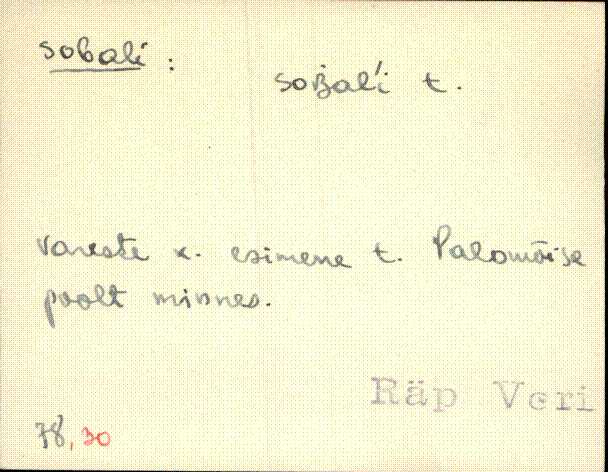 Sobali : soʙal'i t.
Vareste k. esimene t. Palomõise
poolt minnes.
Räp Veri
78, 30